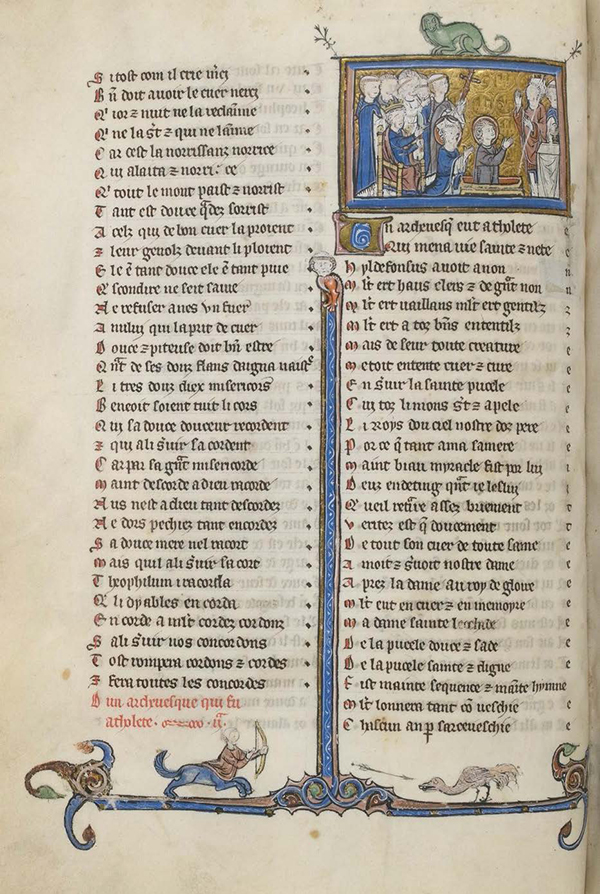 Si tost com il crie m̄cj
Bn̄ doit avoir le cuer nercj
Q' ior ⁊ nuit ne la reclaīme
Q' ne la s̄t ⁊ qui ne laīme
Car cest la norrissanz norrice
Qui alaita ⁊ norri
Q' tout le mont paist ⁊ norrist
Tant est douce q̄dex sorrist
A celz qui de bon cuer la proient
⁊ leur genolz devant li plorent
Ele ē tant douce ele ē tant puie
Q' scondire ne seit saine
Ne refuser aues vn fuer
A nului qui la prit de cuer
Douce ⁊ piteuse doit bn̄ estre
Qn̄t de ses douz flans daigna
Li tres douz diex misericors
Beneoit soient tuit li cors
Qui sa douce douceur recordent
⁊ qui a li s̄uir sa cordent
Car par sa gn̄t misericorde
Maint descorde a dieu racorde
Nus nest a dieu tant descordez
Ne dors pechiez tant encordez
Sa douce mere nel racort
Mais quil a li s̄uir sa cort
Theophilum racorda
Q' li dyables en corda
En corde a
Sa li s̄uir nos concordons
Tost rompera cordons ⁊ cordes
⁊ fera toutes les concordes
Dun archevesque qui fu
a tholete
Un archevesq' eut a tholete
Qui mena vie sainte ⁊ nete
Hyldefonsus avoit a non
Ml't ert haus clers ⁊ de gn̄t non
Ml't ert vaillans ml't ert gentilz
Ml't ert a toz bn̄s ententilz
Mais de seur toute creature
Metoit entente cuer ⁊ cure
En s̄uir la sainte pucele
Cui toz li mons s̄t ⁊ apele
Li roys dou ciel nostre dor pere
Por ce q̄ tant ama sa mere
Maint biau myracle fist por lui
Deux en
Q'ueil retn̄re assez briement
Veritez est q̄ doucement
De tout son cuer de toute same
Amoit ⁊ s̄uoit nostre dame
Aprez la dame au roy de gloire
Ml't eut en cuer ⁊ en memoyre
Ma dame sainte
De la pucele douce ⁊ sade
De la pucele sainte ⁊ digne
Fist mainte sequence ⁊ mainte hymne
Ml't lonnera tant cō veschie
Chascun an p̄ sarceveschie